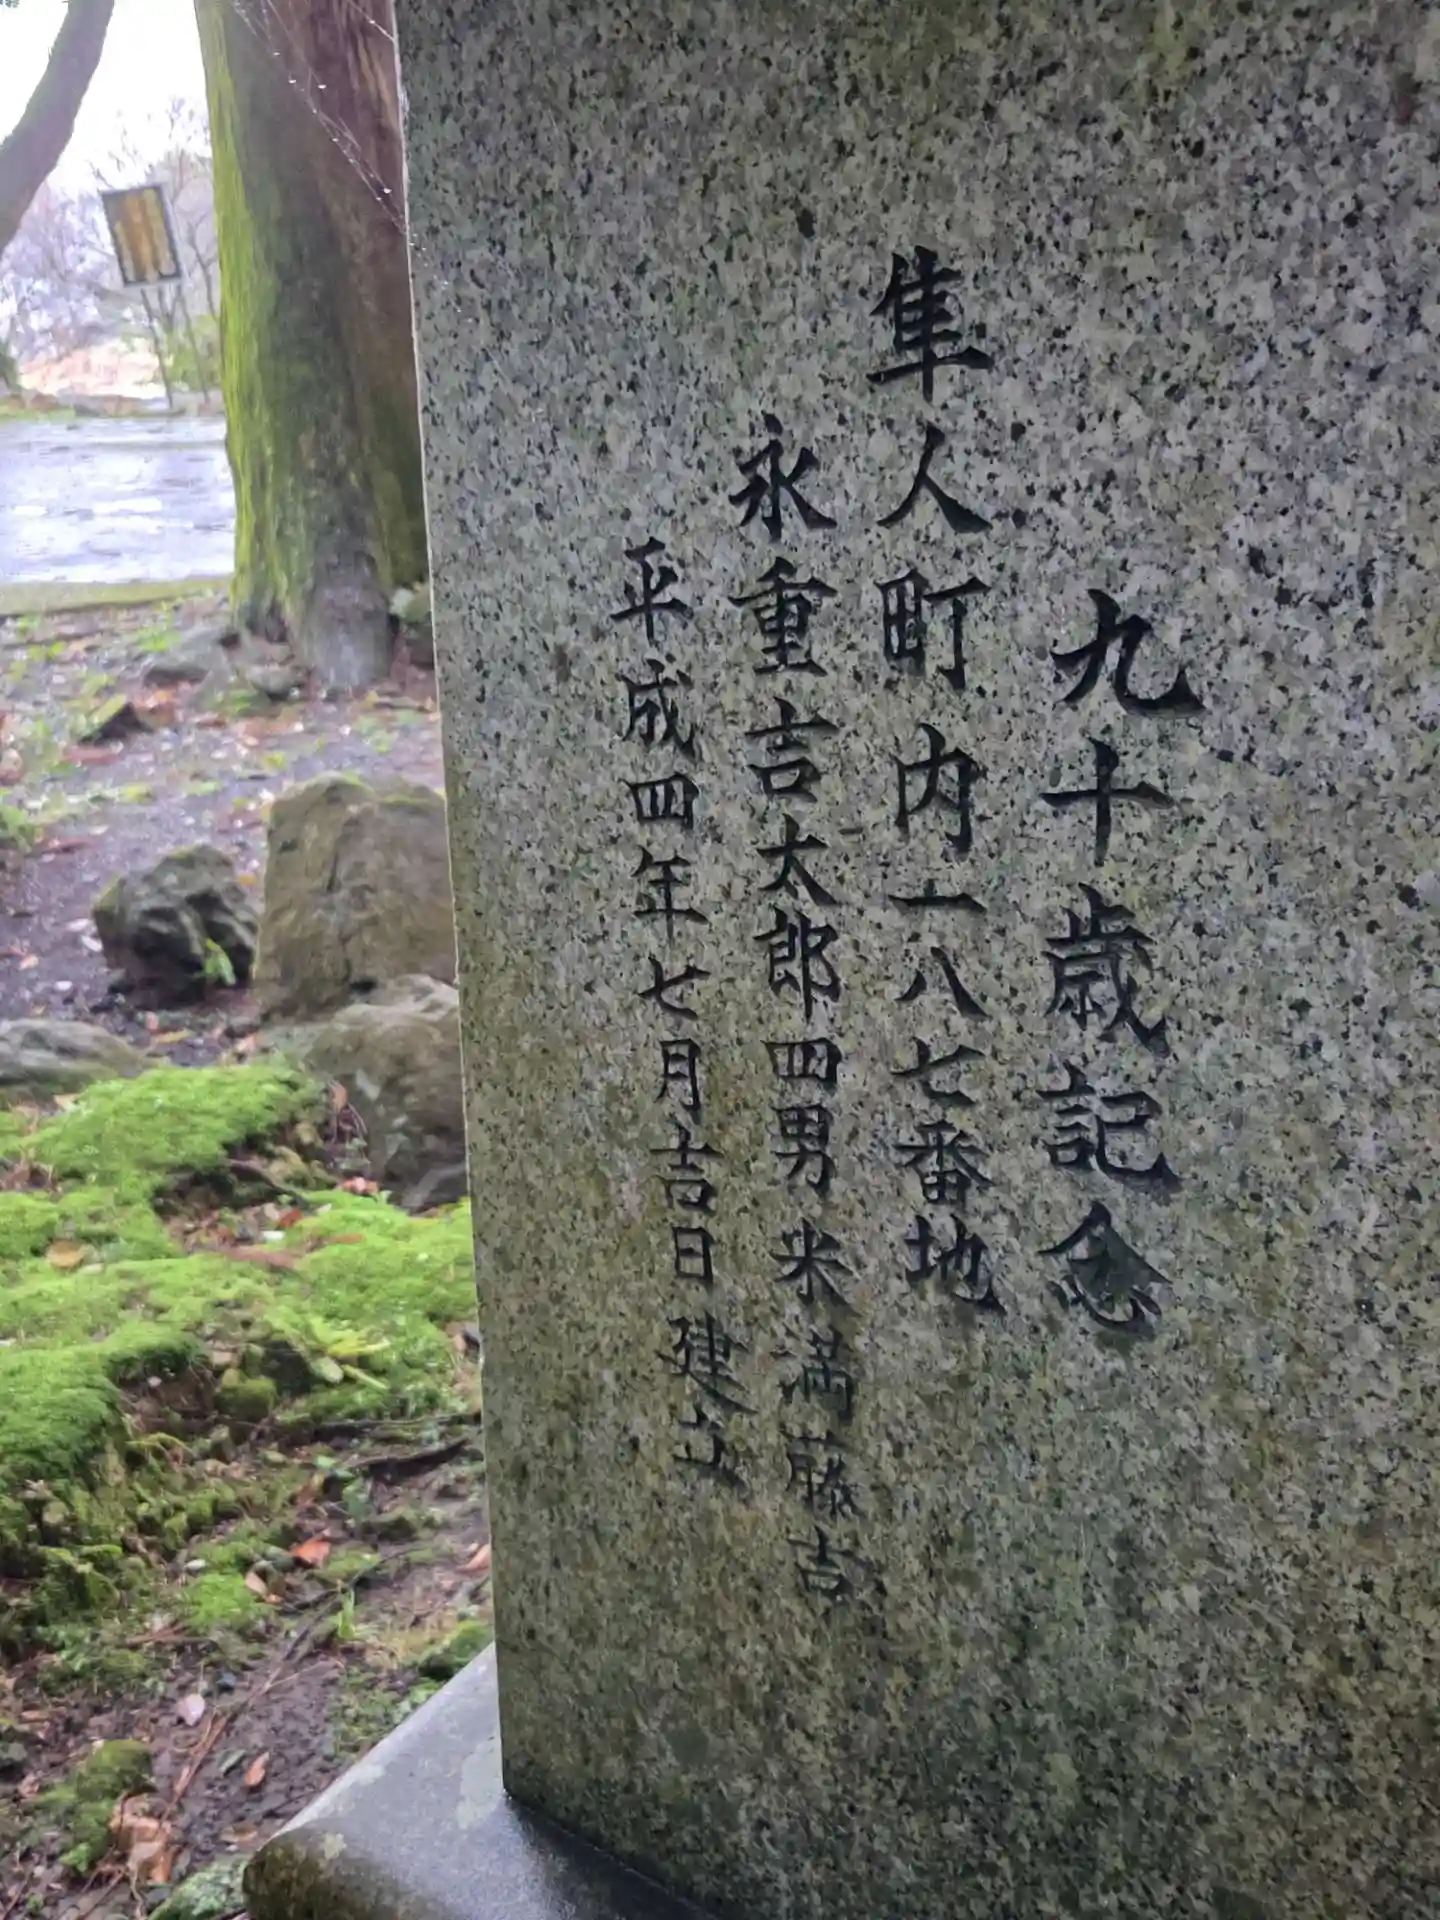 九十歳記念
隼人町内一八七番地
永重吉太郎四男 米満藤吉
平成四年七月吉日建立